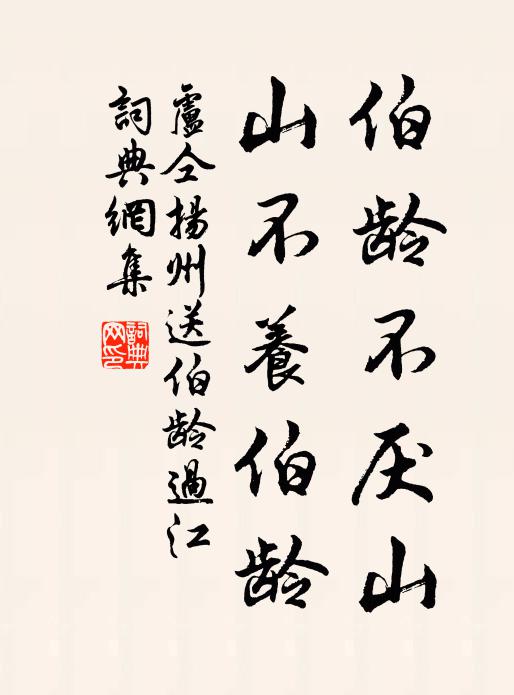 伯龄不厌山
山不養伯龄
盧仝揚州送伯龄過江
詞典網集
詞典
网印